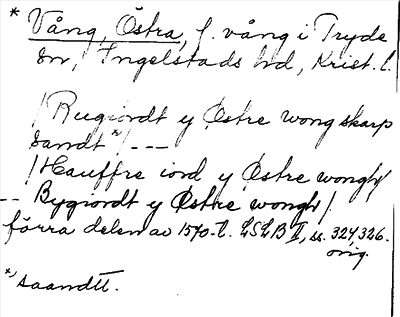 * Vång, Östra, f. vång i Tryde
sn, Ingelstads hd, Krist. l.
/Rugiordt y Østre wong skarp
sandt*)/ ---
/Hauffre iord y Østre wongh/
-- Bygiordt y Østre wongh/.
förra delen av 1570-t. LSLB II, ss. 324, 326.
orig.
*) saandtt.